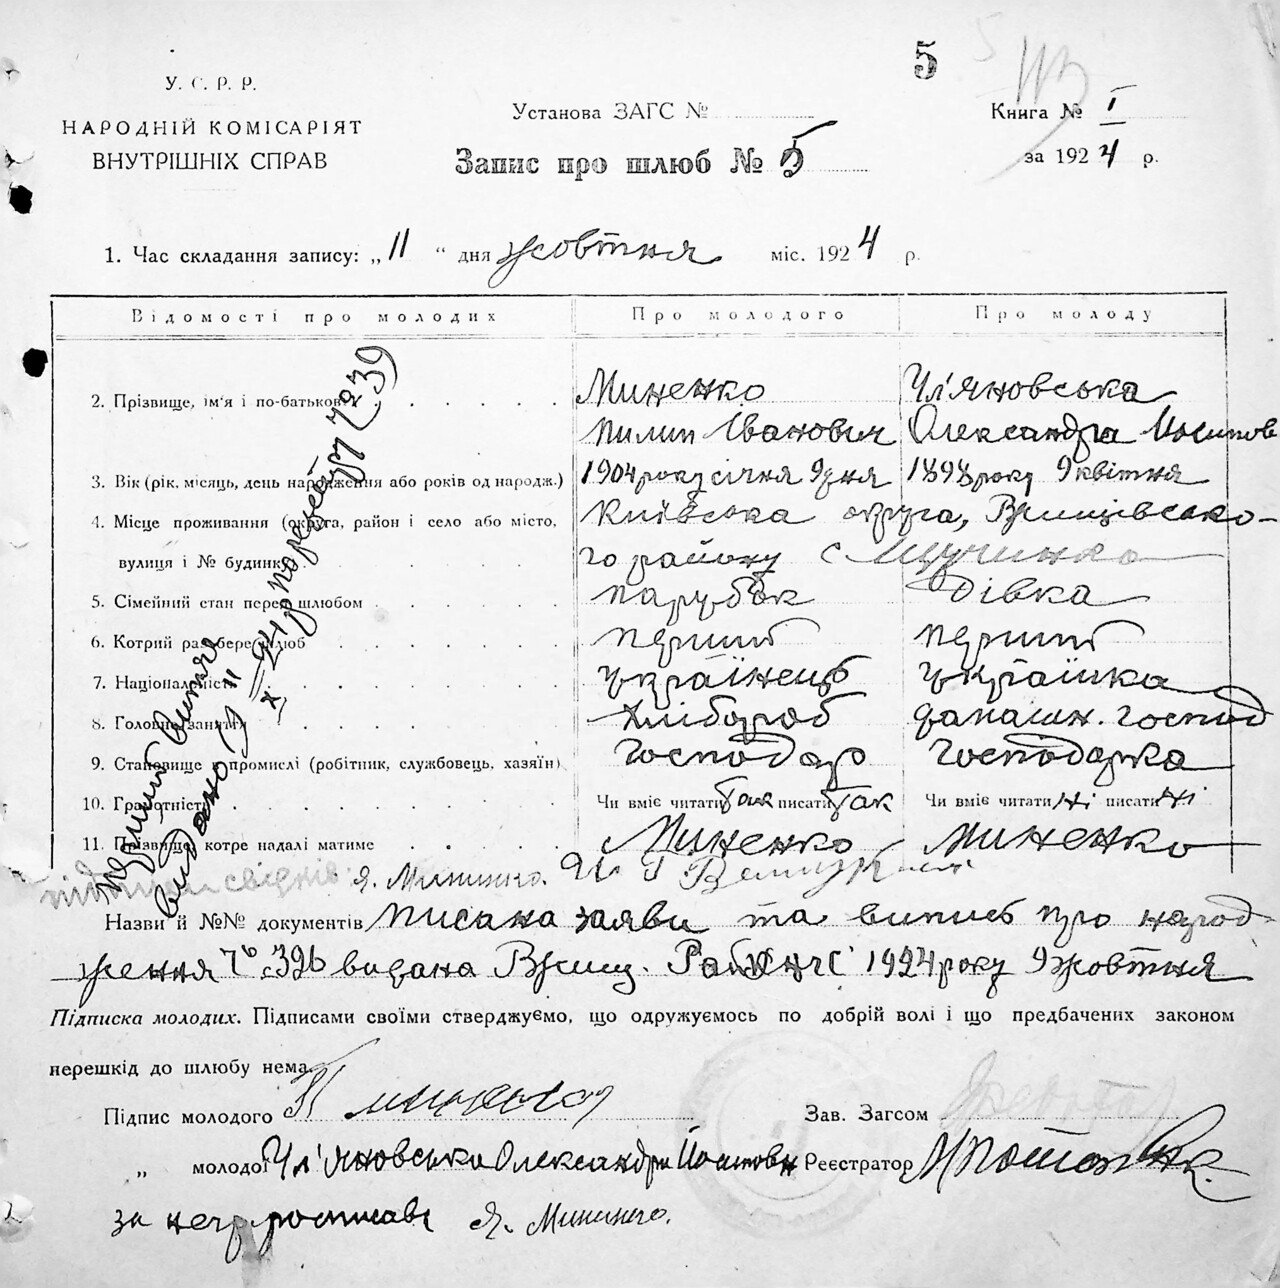 5
У. С. Р. Р.
НАРОДНІЙ КОМІСАРІЯТ
ВНУТРІШНІХ СПРАВ
Установа ЗАГС №
Запис про шлюб № 5
Книга № I
за 1924 р.
1. Час складання запису: „11“ дня жовтня міс. 1924 р.
Відомості про молодих Про молодого Про молоду
2. Прізвище, ім'я і по-батькові Миненко Ул'яновська
Пилип Іванович Олександра Йосипов
3. Вік (рік, місяць, день народження або років од народж.) 1904 року січня 9 дня 1898 року 9 квітня
4. Місце проживання (округа, район і село або місто, Київська округа, Ржищівсько-
вулиця і № будинку го району с
5. Сімейний стан перед шлюбом парубок дівка
6. Котрий раз бере шлюб перший перший
7. Національність українець українка
8. Головне заняття хлібороб домашн. господ
9. Становище в промислі (робітник, службовець, хазяїн) господар господарка
10. Грамотність Чи вміє читати так писати так Чи вміє читати ні писати ні
11. Прізвище, котре надалі матиме Миненко Миненко
підписи свідків: Я. Миненко.
Назви й №№ документів писана заява та випис про народ-
ження № 326 видана Ржищ. 1924 року 9 жовтня
Підписка молодих. Підписами своїми стверджуємо, що одружуємось по добрій волі і що предбачених законом
перешкід до шлюбу нема.
Підпис молодого П Миненко Зав. Загсом
„ молодої Ул'яновська Олександра Йосиповн Реєстратор
за негр росписавс Я. Миненко.
Перший витяг
видано 11 24 р